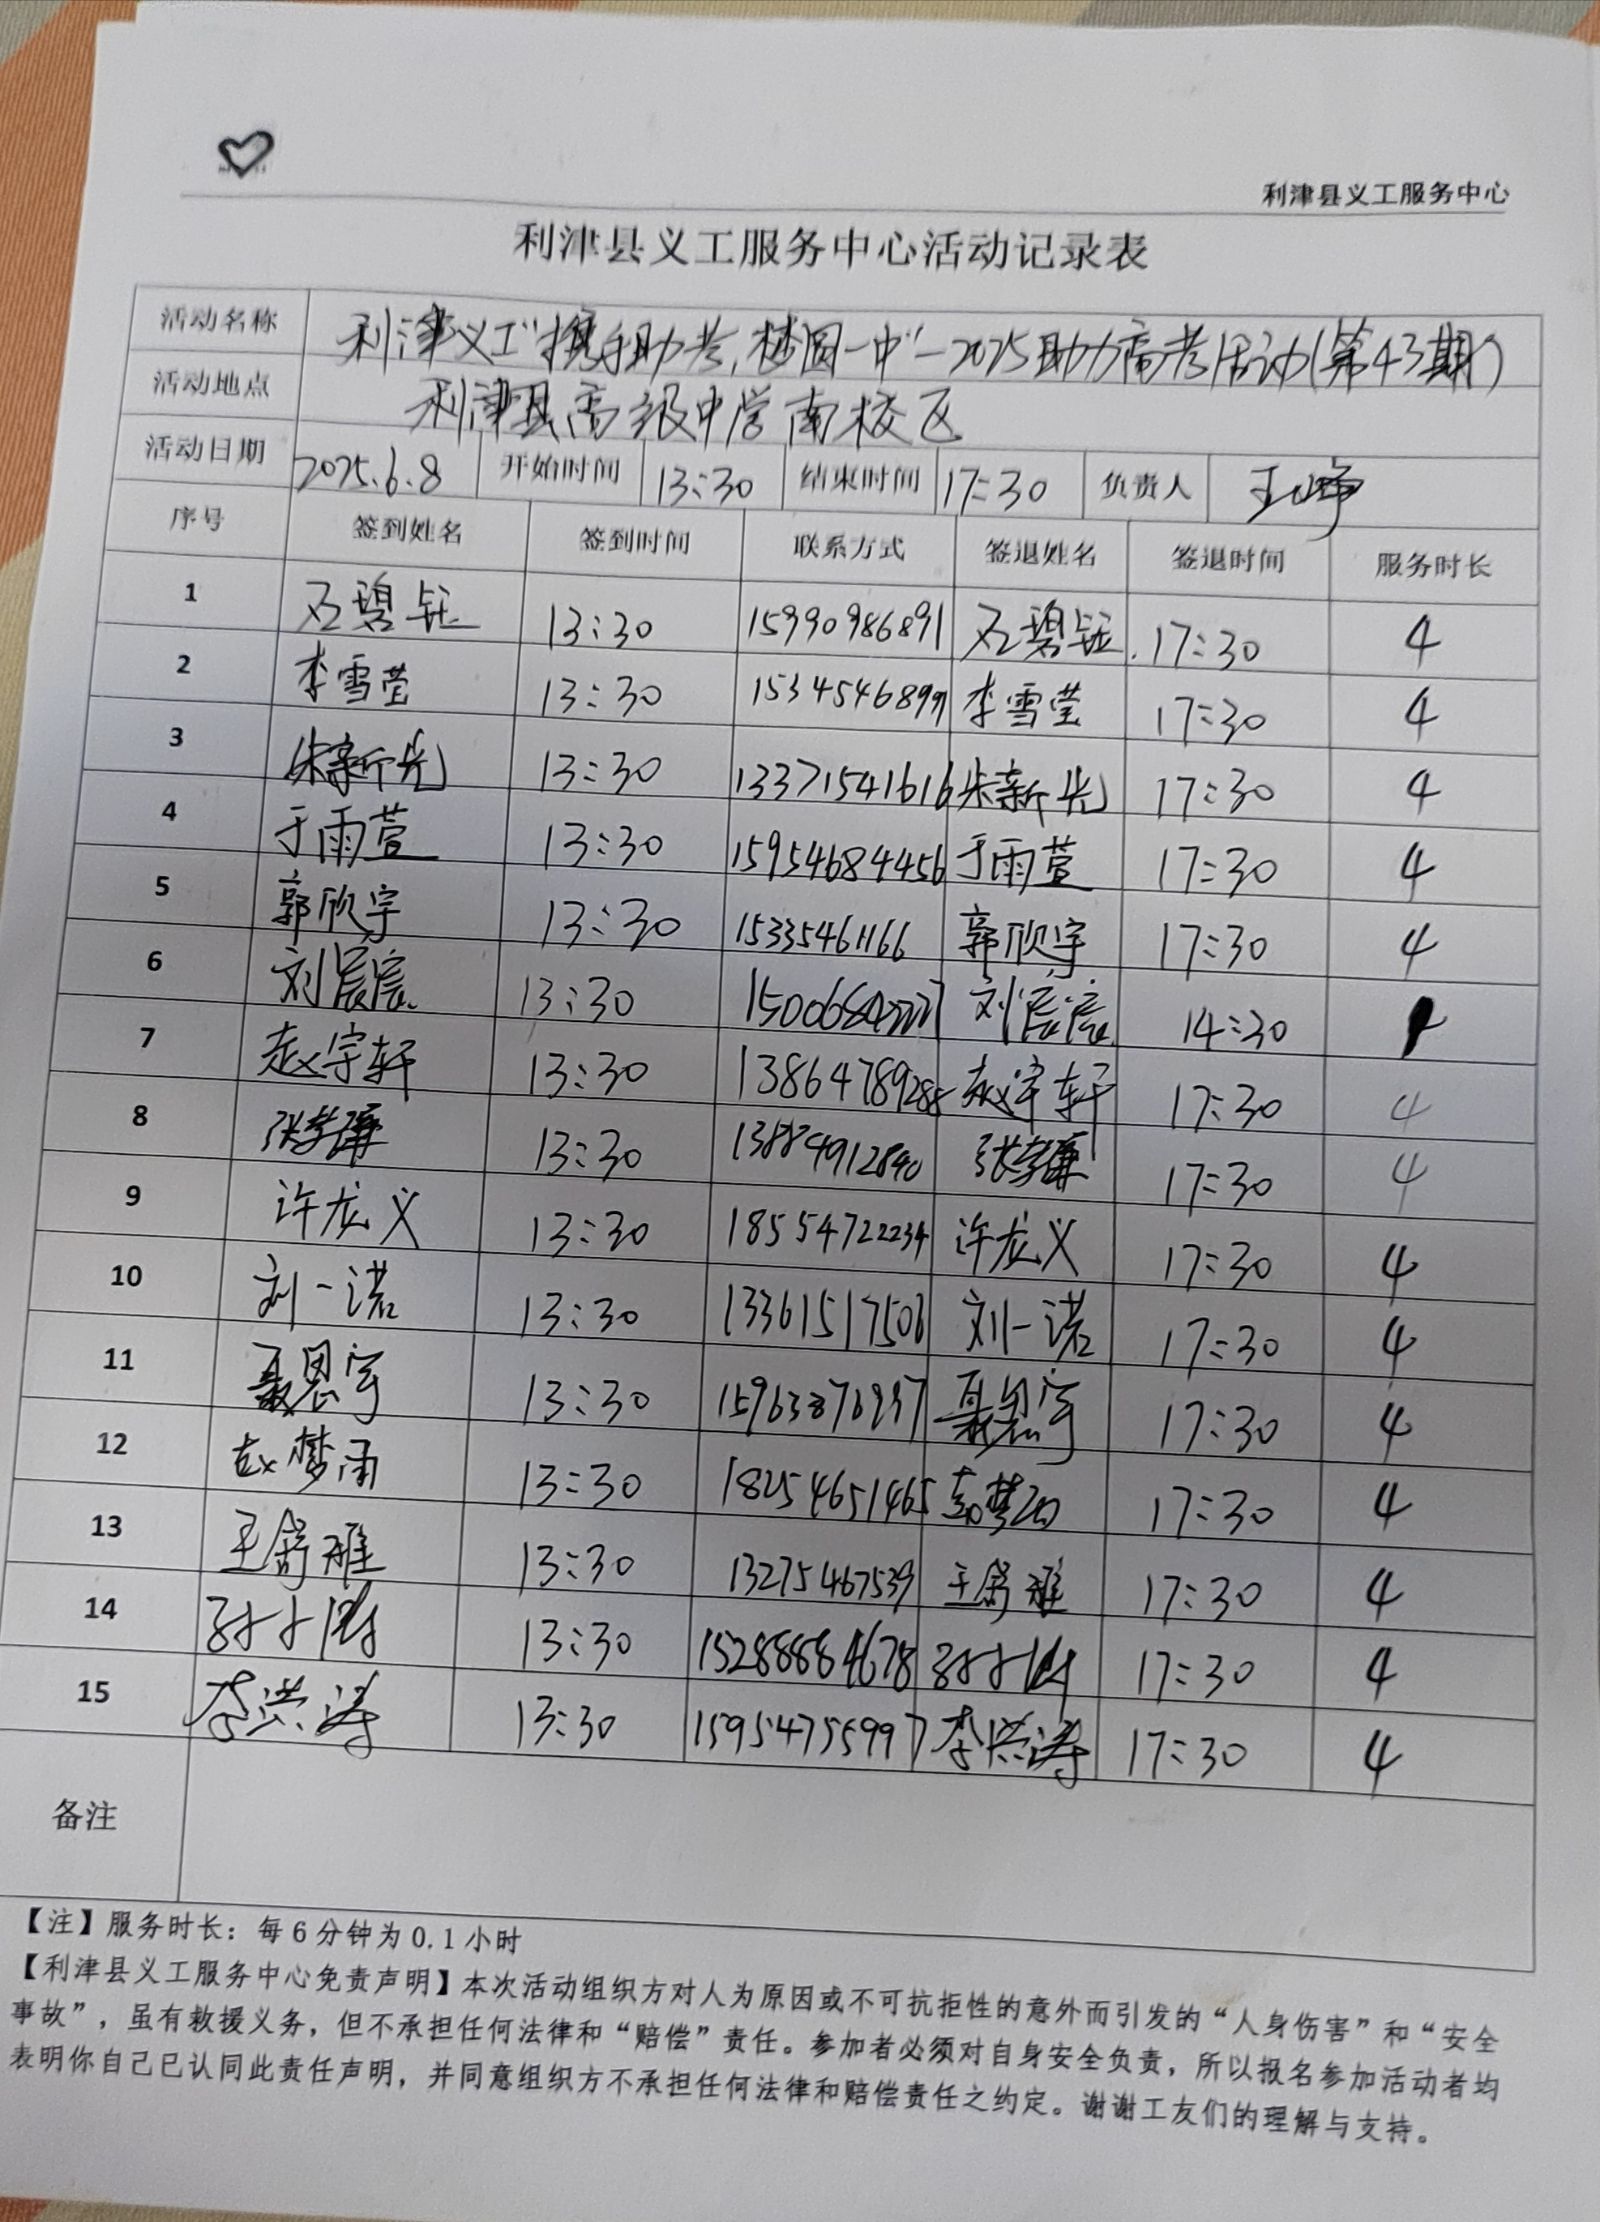 利津县义工服务中心
利津县义工服务中心活动记录表
活动名称 利津义工"携手助考,梦圆一中"-2025助力高考活动(第43期)
活动地点 利津县高级中学南校区
活动日期 2025.6.8 开始时间 13:30 结束时间 17:30 负责人 王峥
序号 签到姓名 签到时间 联系方式 签退姓名 签退时间 服务时长
1 石碧钰 13:30 15990986891 石碧钰 17:30 4
2 李雪莹 13:30 李雪莹 17:30 4
3 朱新光 13:30 13371541616 朱新光 17:30 4
4 于雨萱 13:30 15954684456 于雨萱 17:30 4
5 郭欣宇 13:30 15335461166 郭欣宇 17:30 4
6 刘宸宸 13:30 刘宸宸 14:30 1
7 赵宇轩 13:30 13864789288 赵宇轩 17:30 4
8 13:30 13884912840 17:30 4
9 许龙义 13:30 18554722234 许龙义 17:30 4
10 刘一诺 13:30 13361517506 刘一诺 17:30 4
11 聂思宇 13:30 聂思宇 17:30 4
12 赵梦雨 13:30 18254651465 17:30 4
13 王舒雅 13:30 13275467539 王舒雅 17:30 4
14 13:30 15288884678 17:30 4
15 李洪涛 13:30 15954755997 李洪涛 17:30 4
备注
【注】服务时长：每6分钟为0.1小时
【利津县义工服务中心免责声明】本次活动组织方对人为原因或不可抗拒性的意外而引发的“人身伤害”和“安全
事故”，虽有救援义务，但不承担任何法律和“赔偿”责任。参加者必须对自身安全负责，所以报名参加活动者均
表明你自己已认同此责任声明，并同意组织方不承担任何法律和赔偿责任之约定。谢谢工友们的理解与支持。